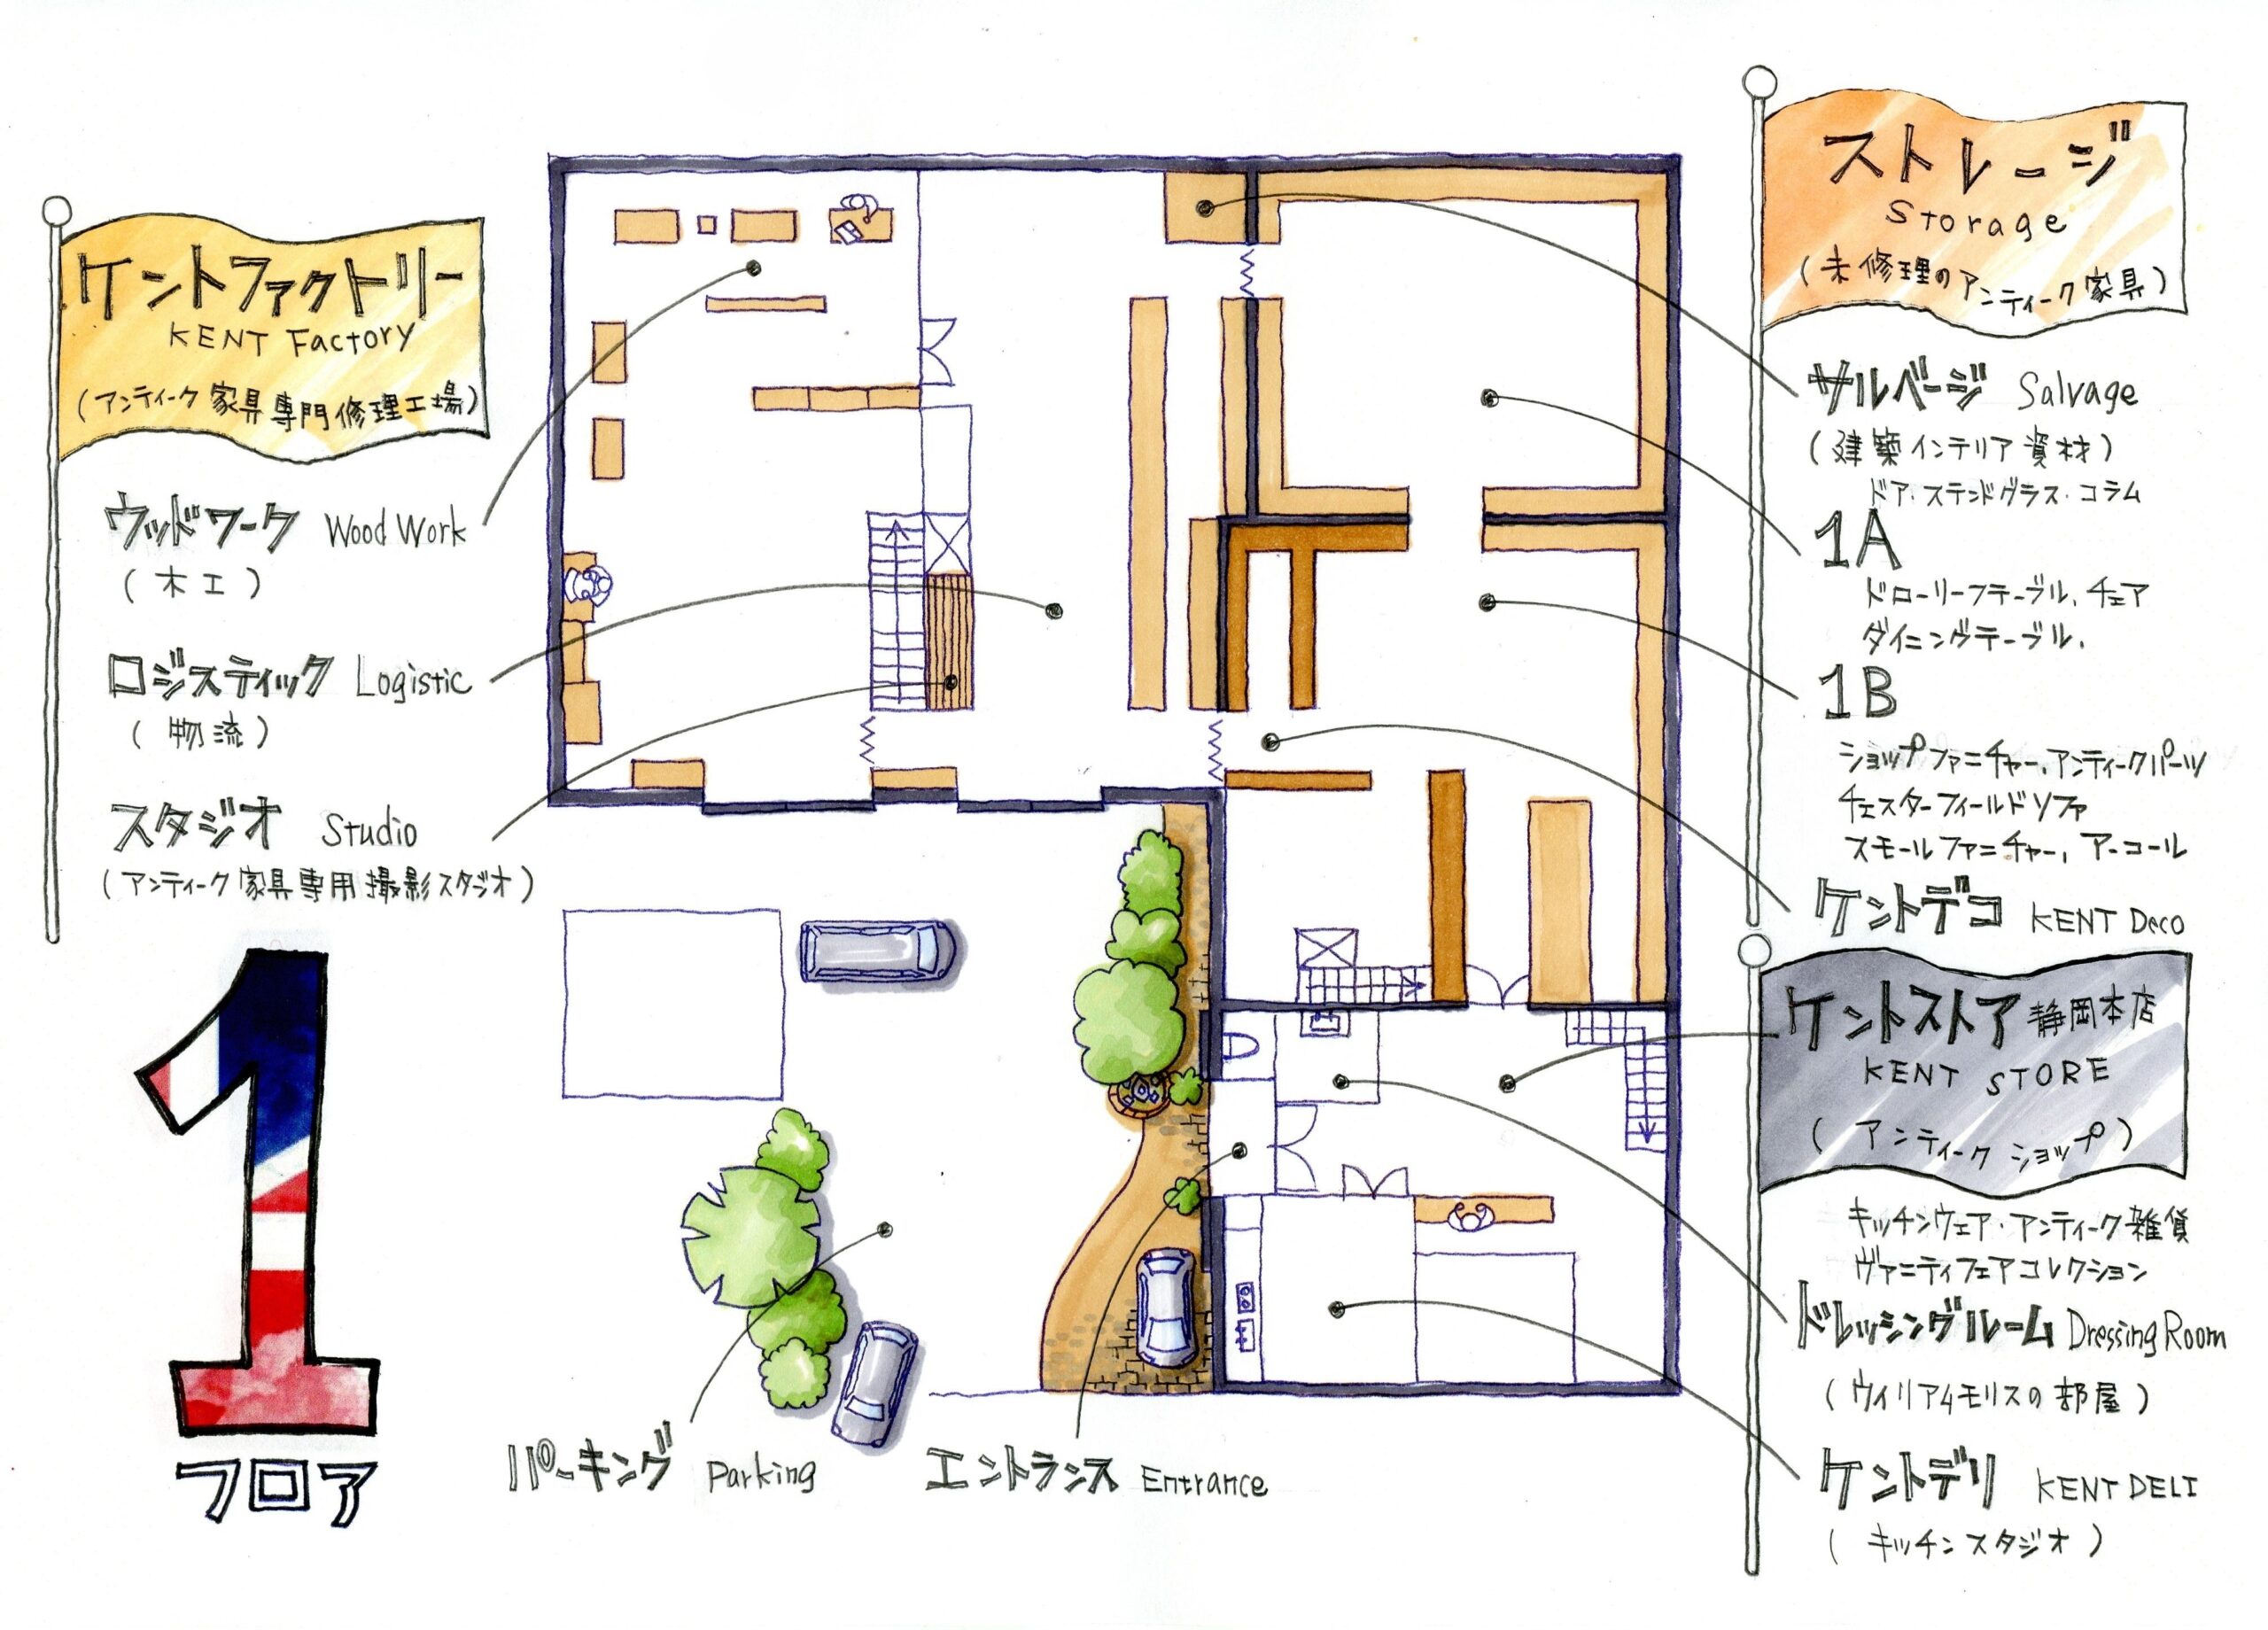 ケントファクトリー
KENT Factory
(アンティーク家具専門修理工場)
ウッドワーク Wood Work
(木工)
ロジスティック Logistic
(物流)
スタジオ Studio
(アンティーク家具専用撮影スタジオ)
1
フロア
パーキング Parking
エントランス Entrance
ストレージ
Storage
(未修理のアンティーク家具)
サルベージ Salvage
(建築インテリア資材)
ドア・ステンドグラス・コラム
1A
ドローリーフテーブル、チェア
ダイニングテーブル、
1B
ショップファニチャー、アンティークパーツ
チェスターフィールドソファ
スモールファニチャー、アーコール
ケントデコ KENT Deco
ケントストア 静岡本店
KENT STORE
(アンティークショップ)
キッチンウェア・アンティーク雑貨
ヴァニティフェアコレクション
ドレッシングルーム Dressing Room
(ウィリアムモリスの部屋)
ケントデリ KENT DELI
(キッチンスタジオ)